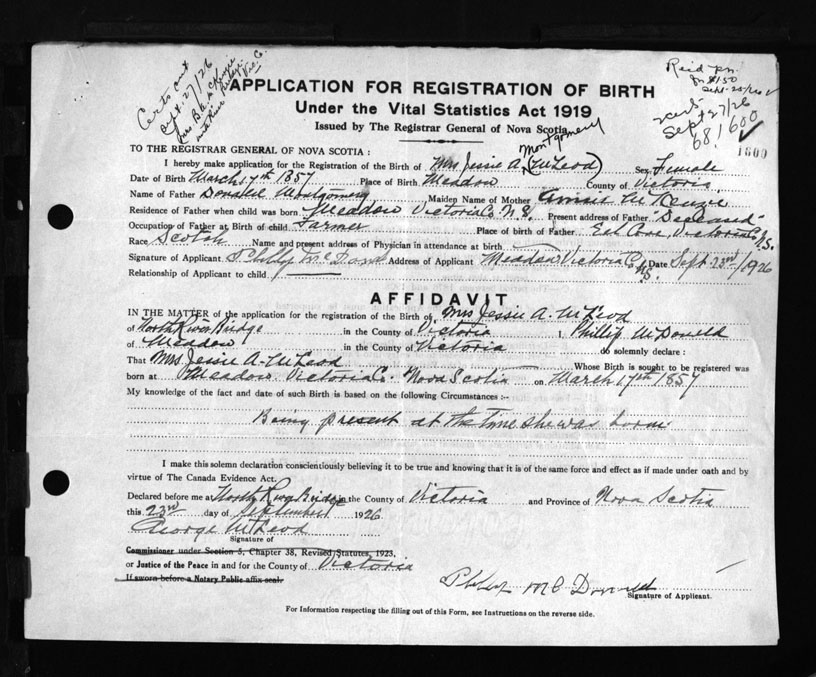 Certs out
Sept. 27/26
North River Bridge
Vic. Co.
Sept 27/26
68,600
1800
APPLICATION FOR REGISTRATION OF BIRTH
Under the Vital Statistics Act 1919
Issued by The Registrar General of Nova Scotia
TO THE REGISTRAR GENERAL OF NOVA SCOTIA :
Montgomery
I hereby make application for the Registration of the Birth of Mrs Jessie A. (McLeod) Sex Female
Date of Birth March 17th 1857 Place of Birth Meadow County of Victoria
Name of Father Donald Montgomery Maiden Name of Mother Annie McKenzie
Residence of Father when child was born Meadow Victoria Co. N.S. Present address of Father "Deceased"
Occupation of Father at Birth of child Farmer Place of birth of Father Eel Cove, Victoria Co. N.S.
Race Scotch Name and present address of Physician in attendance at birth
Signature of Applicant Address of Applicant Meadow Victoria Co. N.S. Date Sept. 23rd/1926
Relationship of Applicant to child
AFFIDAVIT
IN THE MATTER of the application for the registration of the Birth of Mrs Jessie A. McLeod
of North River Bridge in the County of Victoria I, Phillip McDonald
of Meadow in the County of Victoria do solemnly declare :
That Mrs Jessie A. McLeod Whose Birth is sought to be registered was
born at Meadow Victoria Co. Nova Scotia on March 17th 1857
My knowledge of the fact and date of such Birth is based on the following Circumstances :—
Being present at the time she was born
I make this solemn declaration conscientiously believing it to be true and knowing that it is of the same force and effect as if made under oath and by
virtue of The Canada Evidence Act.
Declared before me at North River Bridge in the County of Victoria and Province of Nova Scotia
this 23rd day of September 1926
George McLeod
Signature of
Commissioner under Section 5, Chapter 38, Revised Statutes, 1923,
or Justice of the Peace in and for the County of Victoria
If sworn before a Notary Public affix seal.
McDonald
Signature of Applicant.
For Information respecting the filling out of this Form, see Instructions on the reverse side.